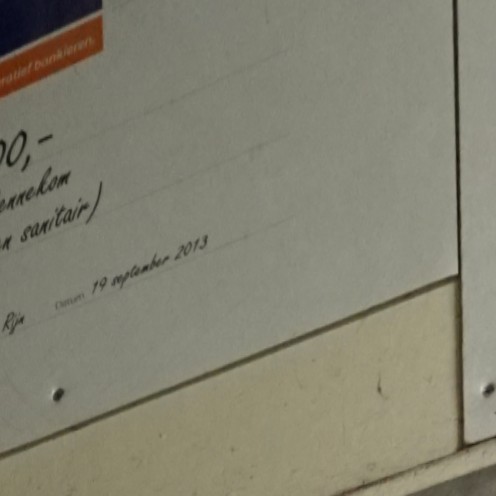 bankieren.
00,-
ennekom
n sanitair)
Rijn Datum 19 september 2013